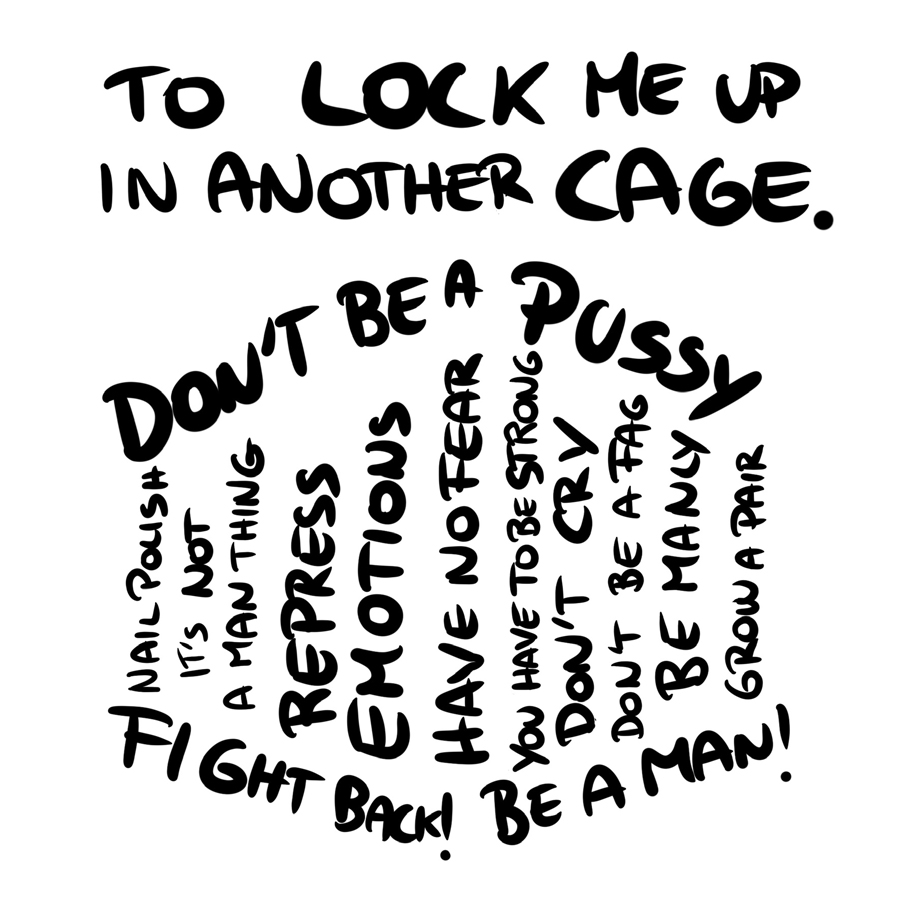 TO LOCK ME UP
IN ANOTHER CAGE.
DON'T BE A PUSSY
NAIL POLISH
IT'S NOT
A MAN THING
REPRESS
EMOTIONS
HAVE NO FEAR
YOU HAVE TO BE STRONG
DON'T CRY
DON'T BE A FAG
BE MANLY
GROW A PAIR
FIGHT BACK! BE A MAN!